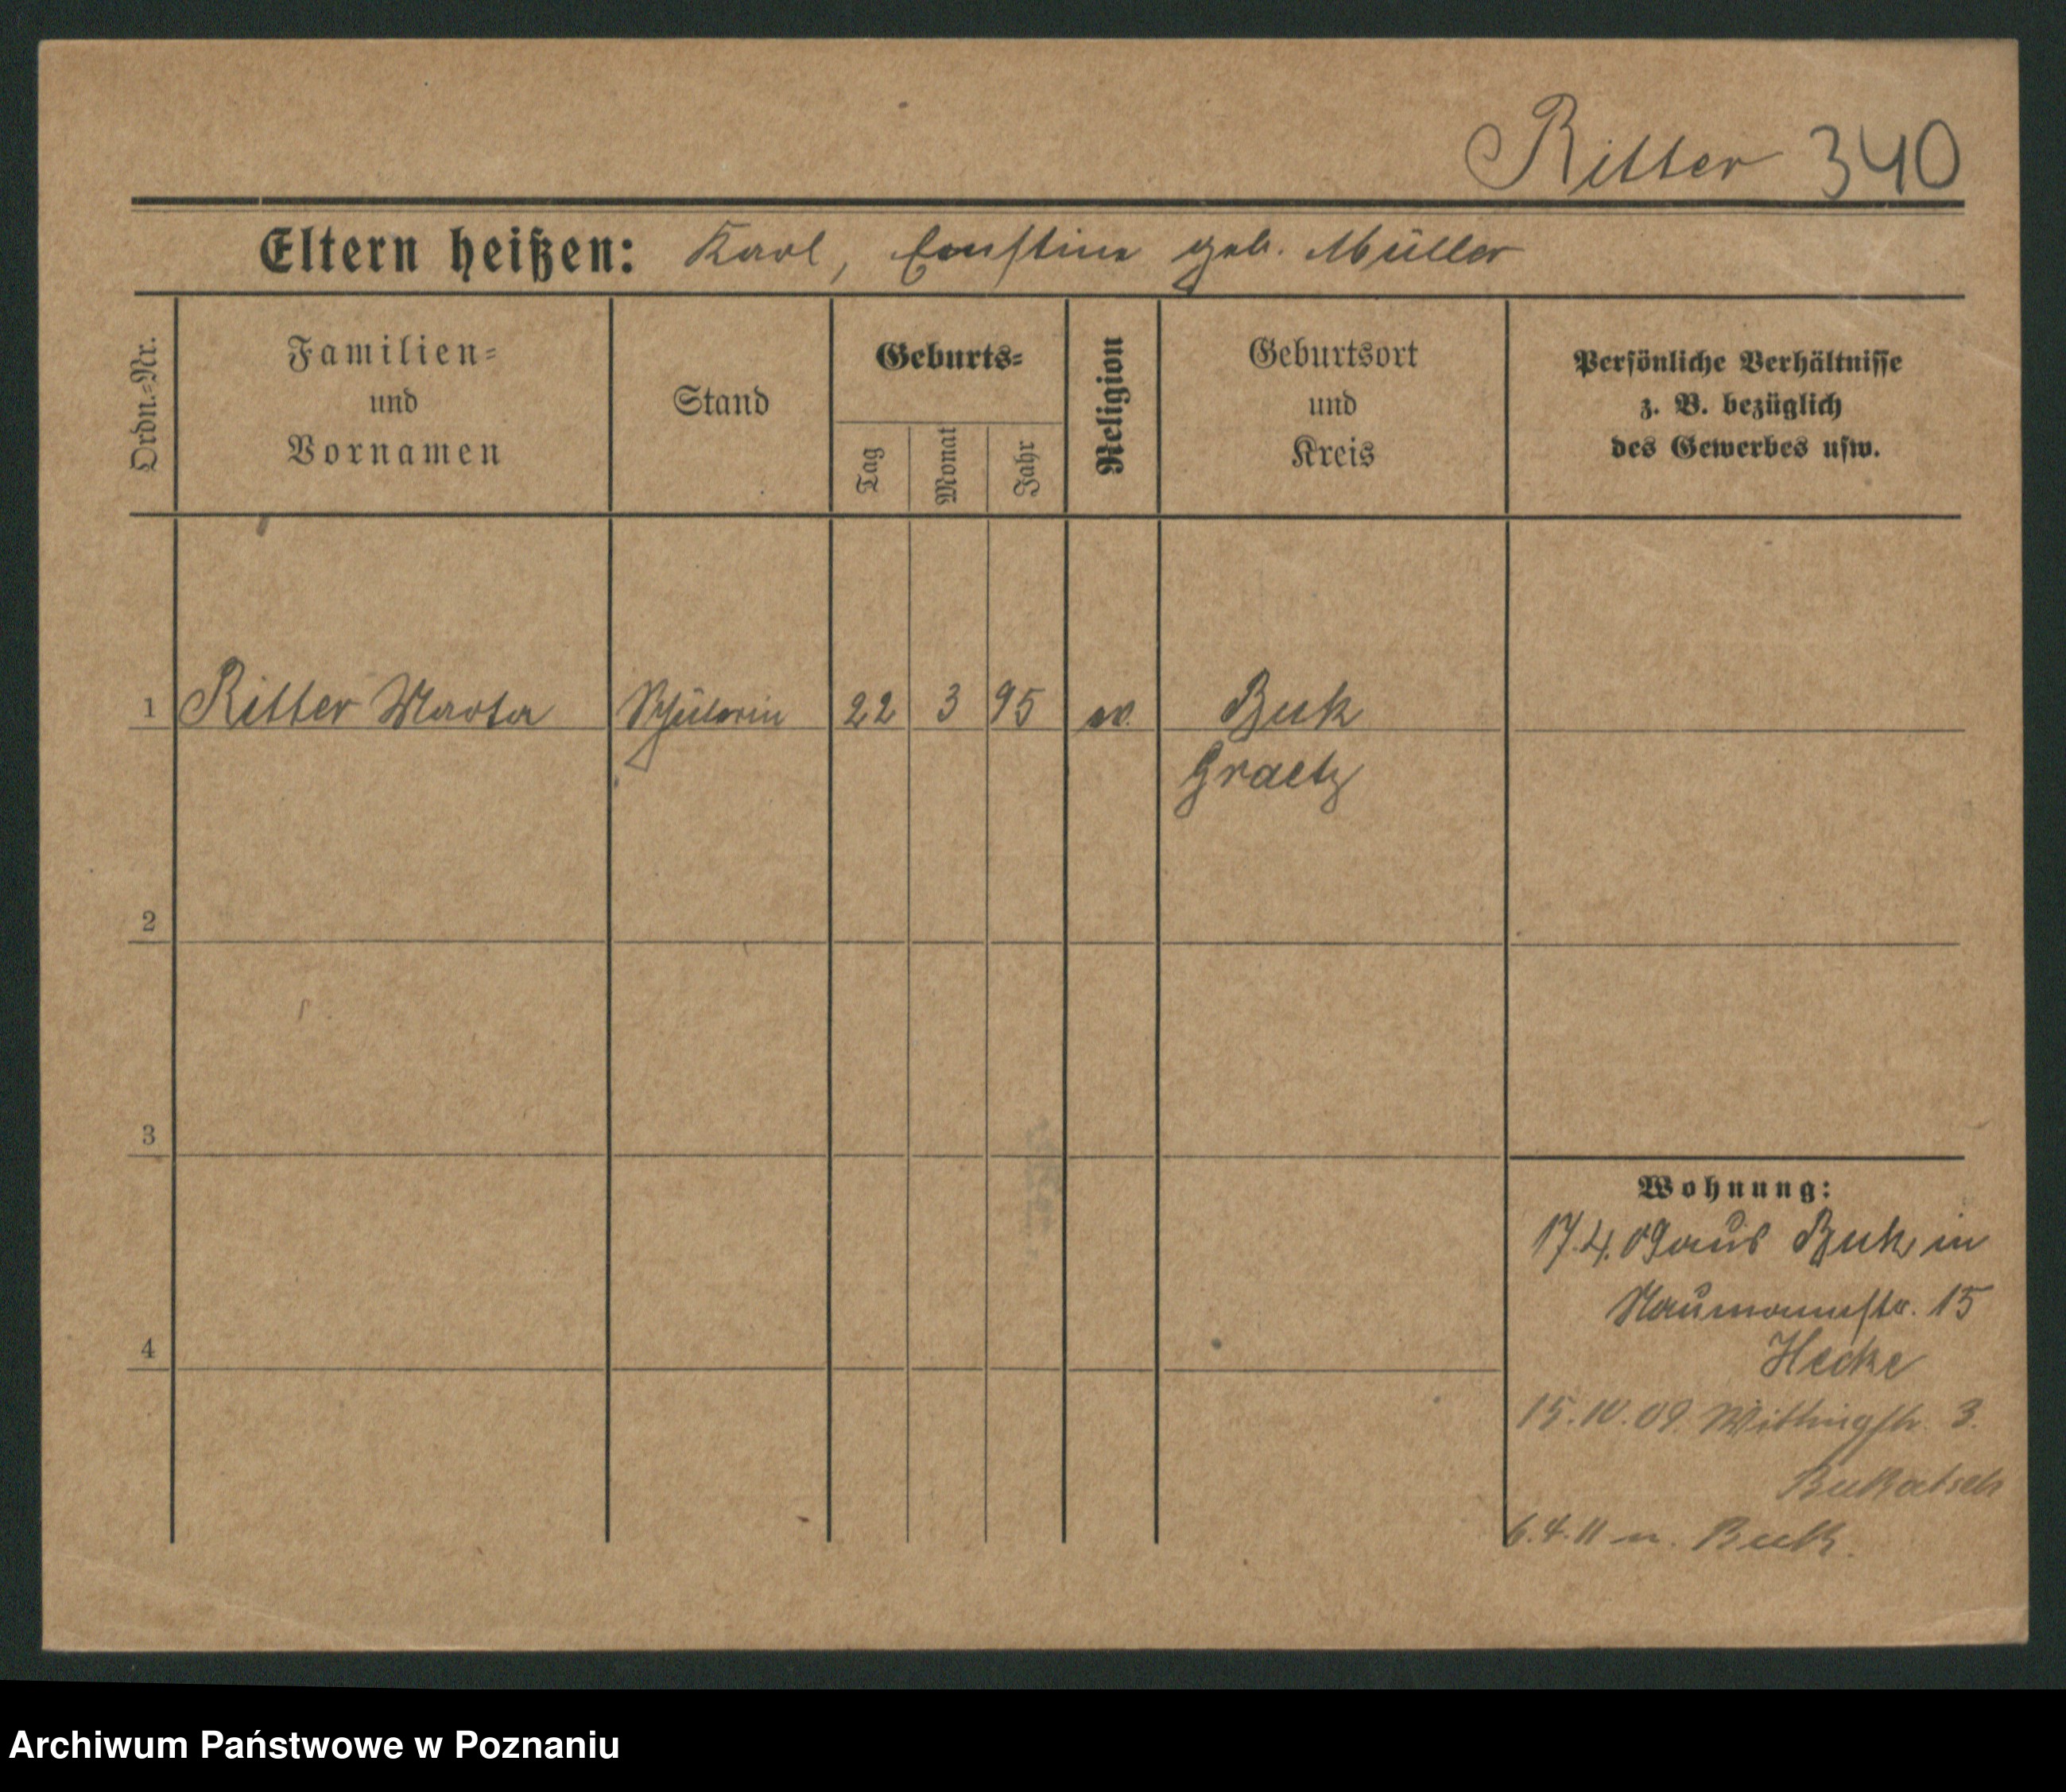 Ritter 340
Eltern heißen: Karl, Ernstine geb. Müller
Ordn.-Nr.
Familien-
und
Vornamen
Stand
Geburts-
Tag
Monat
Jahr
Religion
Geburtsort
und
Kreis
Persönliche Verhältnisse
z. B. bezüglich
des Gewerbes usw.
1 Ritter Marta Schülerin 22 3 95 ev. Buk
Graetz
2
3
4
Wohnung:
17.4.09 aus Buk in
Naumannstr. 15
Hecke
15.10.09. Wittingstr. 3.
Bukatsch
6.4.11 n. Buk.
Archiwum Państwowe w Poznaniu